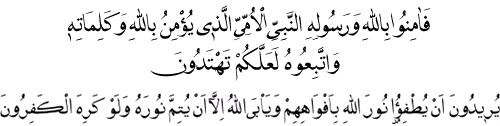 فَاٰمِنُوا بِاللّٰهِ وَرَسُولِهِ النَّبِيِّ الْاُمِّيِّ الَّذٖى يُؤْمِنُ بِاللّٰهِ وَكَلِمَاتِهٖ
وَاتَّبِعُوهُ لَعَلَّكُمْ تَهْتَدُونَ
يُرٖيدُونَ اَنْ يُطْفِؤُا نُورَ اللّٰهِ بِاَفْوَاهِهِمْ وَيَاْبَى اللّٰهُ اِلَّا اَنْ يُتِمَّ نُورَهُ وَلَوْ كَرِهَ الْكَافِرُونَ